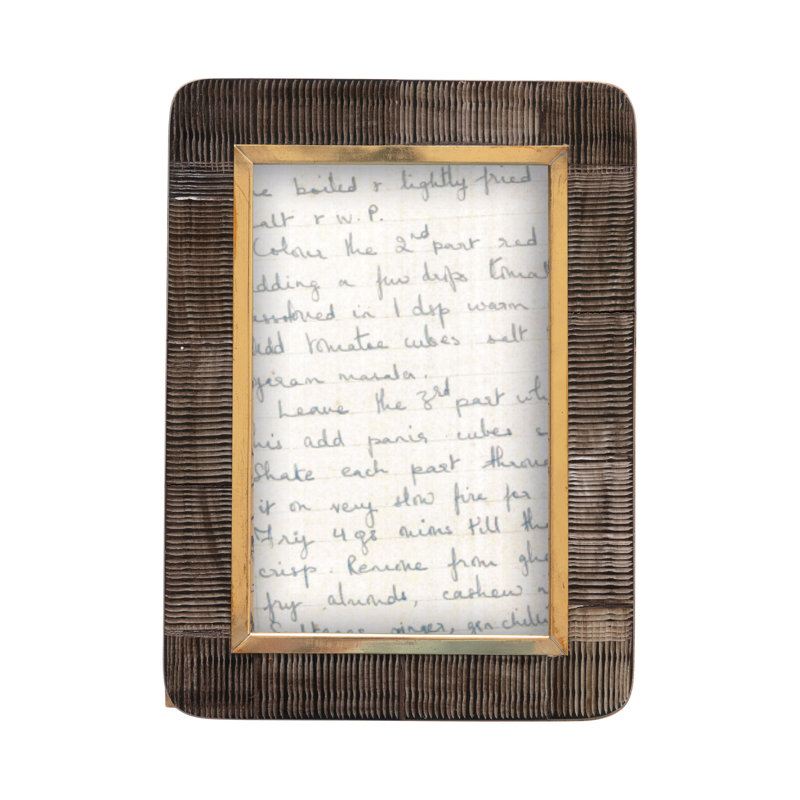 e boiled & lightly fried
alt & W.P.
Colour the 2nd part red
dding a few drops tomat
issolved in 1 dsp warm
Add tomatoe cubes, salt
garam masala.
Leave the 3rd part whi
his add panir cubes s
Shake each part throug
it on very slow fire for
Fry 4 gs onions till th
crisp. Remove from ghe
fry almonds, cashew n
ginger, grn chilli